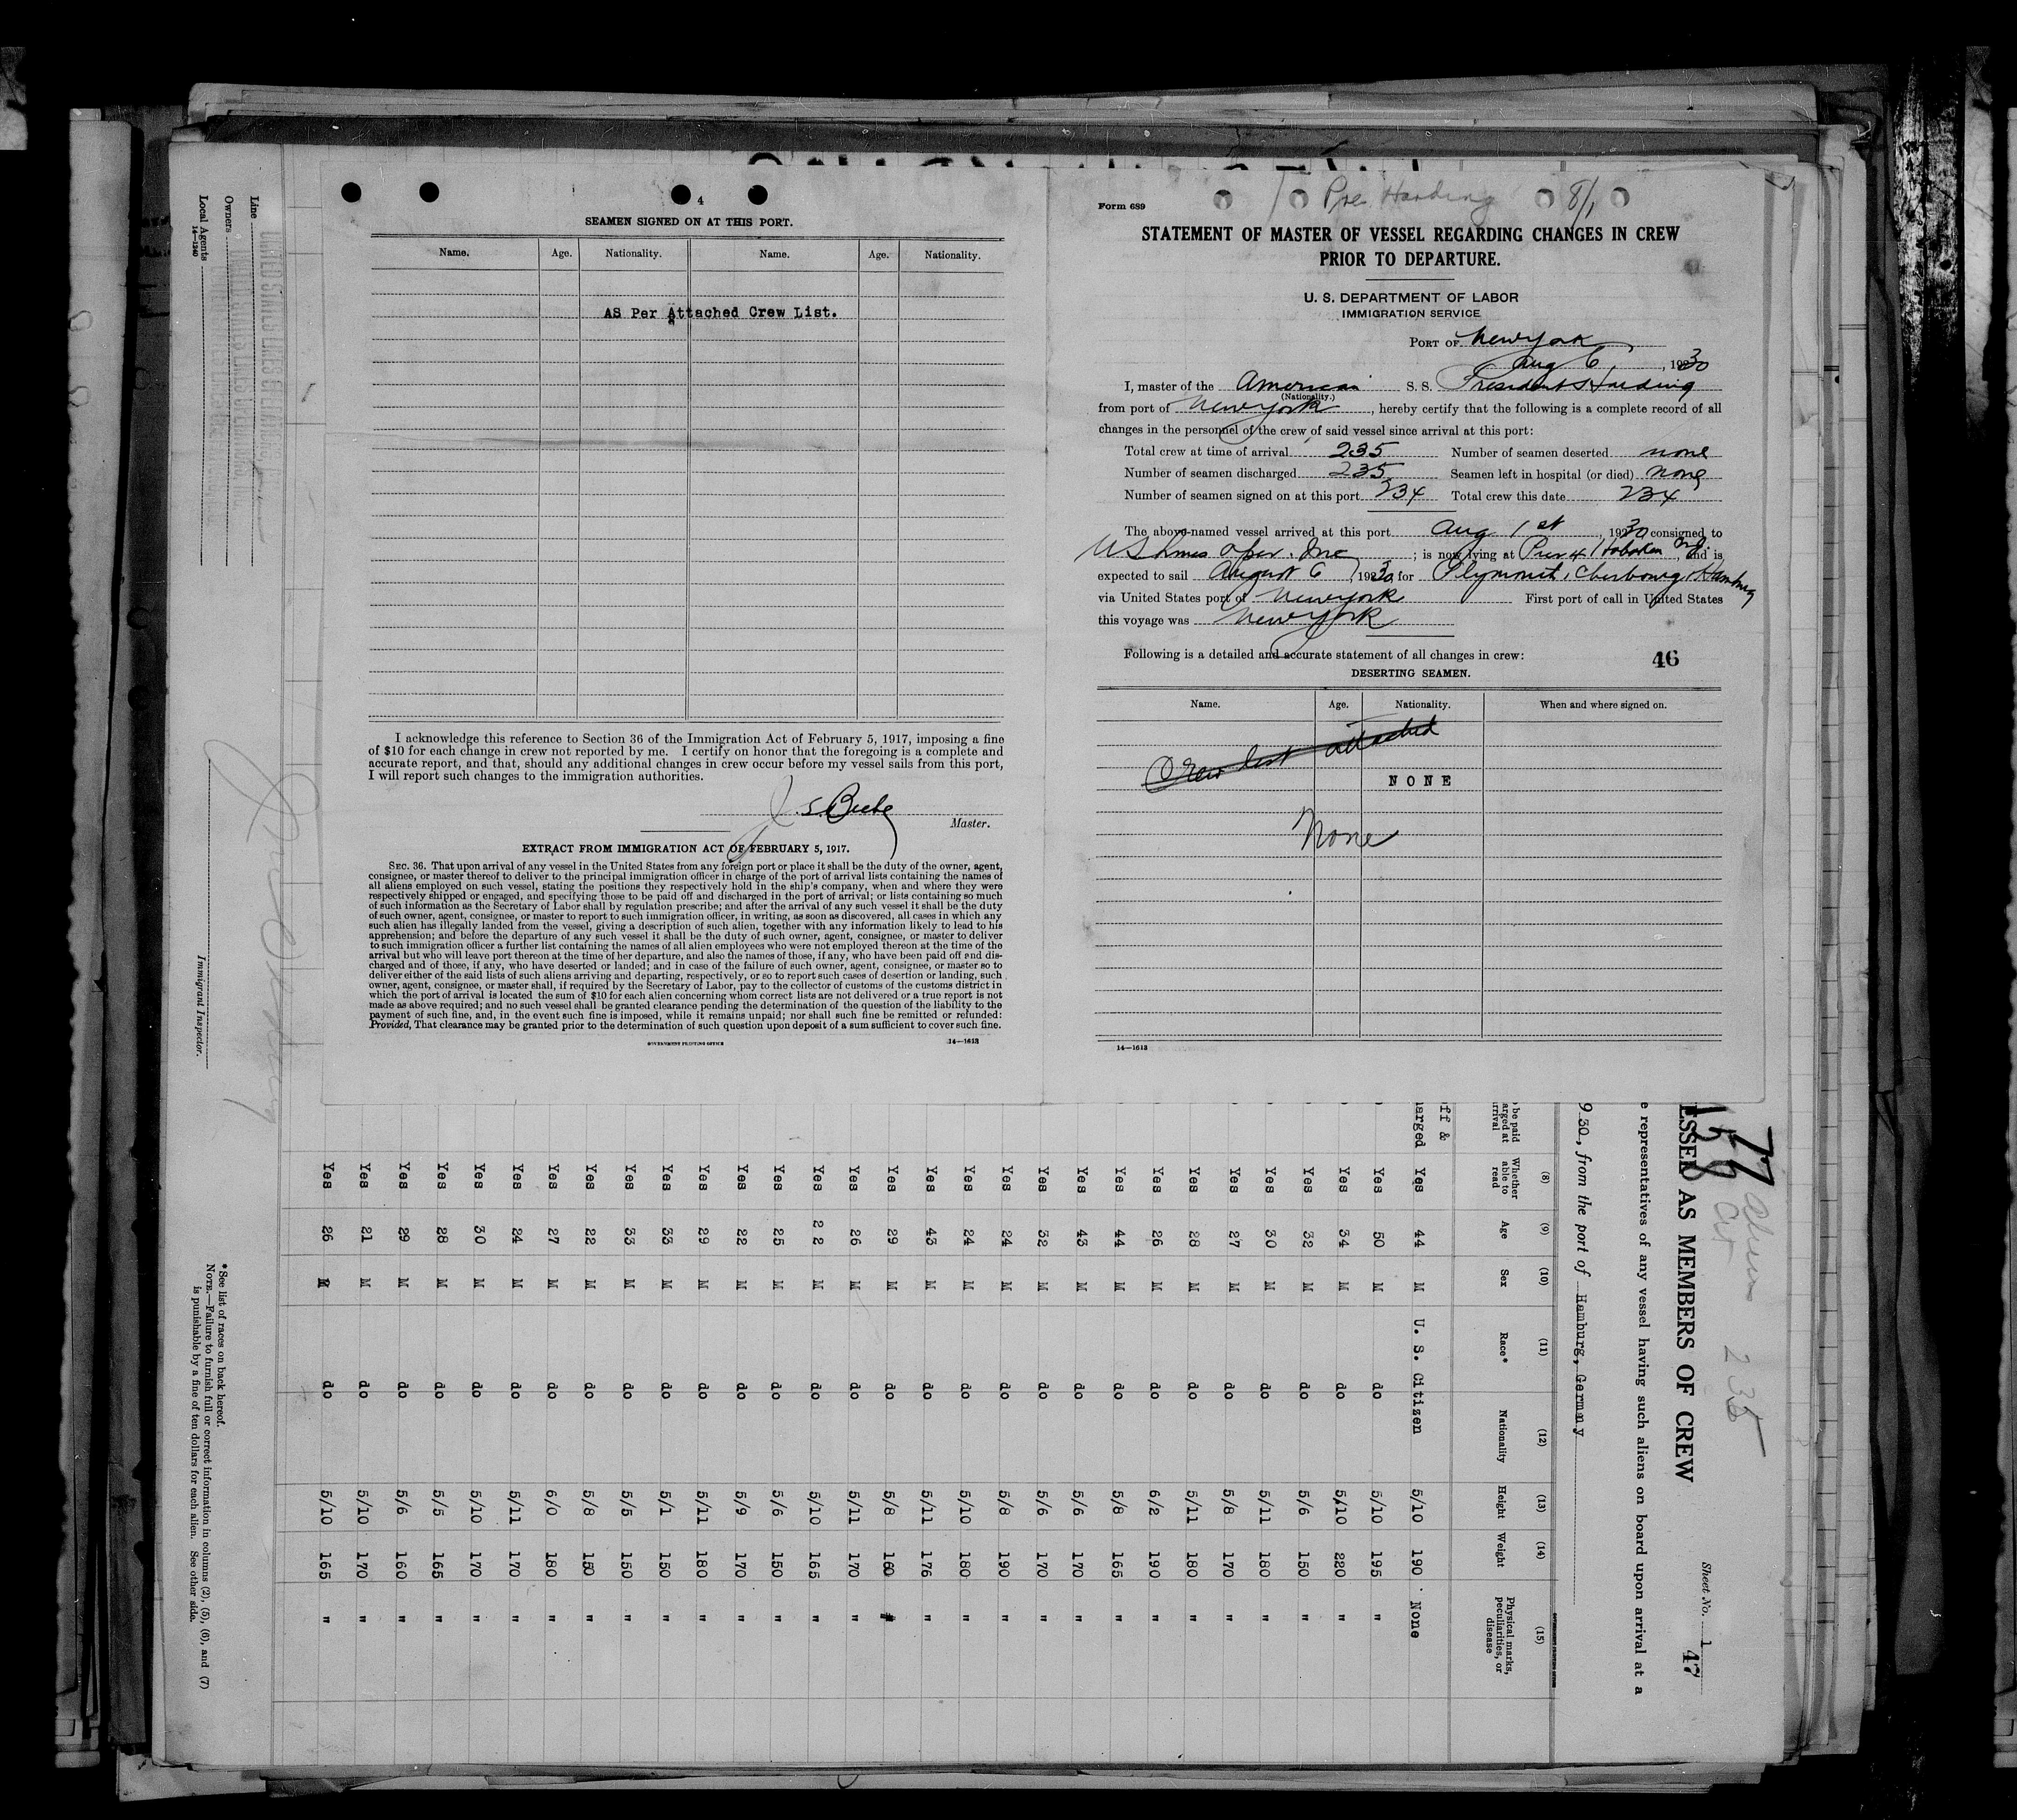 4
SEAMEN SIGNED ON AT THIS PORT.
Name. Age. Nationality. Name. Age. Nationality.
AS Per Attached Crew List.
I acknowledge this reference to Section 36 of the Immigration Act of February 5, 1917, imposing a fine
of $10 for each change in crew not reported by me. I certify on honor that the foregoing is a complete and
accurate report, and that, should any additional changes in crew occur before my vessel sails from this port,
I will report such changes to the immigration authorities.
J. S. Beebe
Master.
EXTRACT FROM IMMIGRATION ACT OF FEBRUARY 5, 1917.
SEC. 36. That upon arrival of any vessel in the United States from any foreign port or place it shall be the duty of the owner, agent,
consignee, or master thereof to deliver to the principal immigration officer in charge of the port of arrival lists containing the names of
all aliens employed on such vessel, stating the positions they respectively hold in the ship's company, when and where they were
respectively shipped or engaged, and specifying those to be paid off and discharged in the port of arrival; or lists containing so much
of such information as the Secretary of Labor shall by regulation prescribe; and after the arrival of any such vessel it shall be the duty
of such owner, agent, consignee, or master to report to such immigration officer, in writing, as soon as discovered, all cases in which any
such alien has illegally landed from the vessel, giving a description of such alien, together with any information likely to lead to his
apprehension; and before the departure of any such vessel it shall be the duty of such owner, agent, consignee, or master to deliver
to such immigration officer a further list containing the names of all alien employees who were not employed thereon at the time of the
arrival but who will leave port thereon at the time of her departure, and also the names of those, if any, who have been paid off and dis-
charged and of those, if any, who have deserted or landed; and in case of the failure of such owner, agent, consignee, or master so to
deliver either of the said lists of such aliens arriving and departing, respectively, or so to report such cases of desertion or landing, such
owner, agent, consignee, or master shall, if required by the Secretary of Labor, pay to the collector of customs of the customs district in
which the port of arrival is located the sum of $10 for each alien concerning whom correct lists are not delivered or a true report is not
made as above required; and no such vessel shall be granted clearance pending the determination of the question of the liability to the
payment of such fine, and, in the event such fine is imposed, while it remains unpaid; nor shall such fine be remitted or refunded:
Provided, That clearance may be granted prior to the determination of such question upon deposit of a sum sufficient to cover such fine.
GOVERNMENT PRINTING OFFICE 14—1613
Form 689 Pres Harding 8/1
STATEMENT OF MASTER OF VESSEL REGARDING CHANGES IN CREW
PRIOR TO DEPARTURE.
U. S. DEPARTMENT OF LABOR
IMMIGRATION SERVICE
PORT OF New York
Aug 6, 1930
I, master of the American S. S. President Harding
(Nationality.)
from port of New York, hereby certify that the following is a complete record of all
changes in the personnel of the crew of said vessel since arrival at this port:
Total crew at time of arrival 235 Number of seamen deserted none
Number of seamen discharged 235 Seamen left in hospital (or died) none
Number of seamen signed on at this port 234 Total crew this date 234
The above-named vessel arrived at this port Aug 1st, 1930 consigned to
US Lines Oper. Inc; is now lying at Pier 4 Hoboken NJ. and is
expected to sail August 6, 1930 for Plymouth, Cherbourg, Hamburg
via United States port of New York First port of call in United States
this voyage was New York
Following is a detailed and accurate statement of all changes in crew: 46
DESERTING SEAMEN.
Name. Age. Nationality. When and where signed on.
Crew list attached
NONE
None
14—1613
Line
Owners
Local Agents
14—1240
Immigrant Inspector.
* See list of races on back hereof.
NOTE.—Failure to furnish full or correct information in columns (2), (5), (6), and (7)
is punishable by a fine of ten dollars for each alien. See other side.
77 Aliens
158 Cit
235
Sheet No. 1
47
ESSEL AS MEMBERS OF CREW
e representatives of any vessel having such aliens on board upon arrival at a
9 30, from the port of Hamburg, Germany
(8) (9) (10) (11) (12) (13) (14) (15)
be paid
arged at
rrival
Whether able to read Age Sex Race* Nationality Height Weight Physical marks, peculiarities, or disease
ff &
arged Yes 44 M U. S. Citizen 5/10 190 None
Yes 50 M do 5/10 195 "
Yes 34 M do 5/10 220 "
Yes 32 M do 5/6 150 "
Yes 30 M do 5/11 180 "
Yes 27 M do 5/8 170 "
Yes 28 M do 5/11 180 "
Yes 26 M do 6/2 190 "
Yes 44 M do 5/8 165 "
Yes 43 M do 5/6 170 "
Yes 32 M do 5/6 170 "
Yes 24 M do 5/8 190 "
Yes 24 M do 5/10 180 "
Yes 43 M do 5/11 176 "
Yes 29 M do 5/8 160 "
Yes 26 M do 5/11 170 "
Yes 2 2 M do 5/10 165 "
Yes 25 M do 5/6 150 "
Yes 22 M do 5/9 170 "
Yes 29 M do 5/11 180 "
Yes 33 M do 5/1 150 "
Yes 33 M do 5/5 150 "
Yes 22 M do 5/8 150 "
Yes 27 M do 6/0 180 "
Yes 24 M do 5/11 170 "
Yes 30 M do 5/10 170 "
Yes 28 M do 5/5 165 "
Yes 29 M do 5/6 160 "
Yes 21 M do 5/10 170 "
Yes 26 M do 5/10 165 "